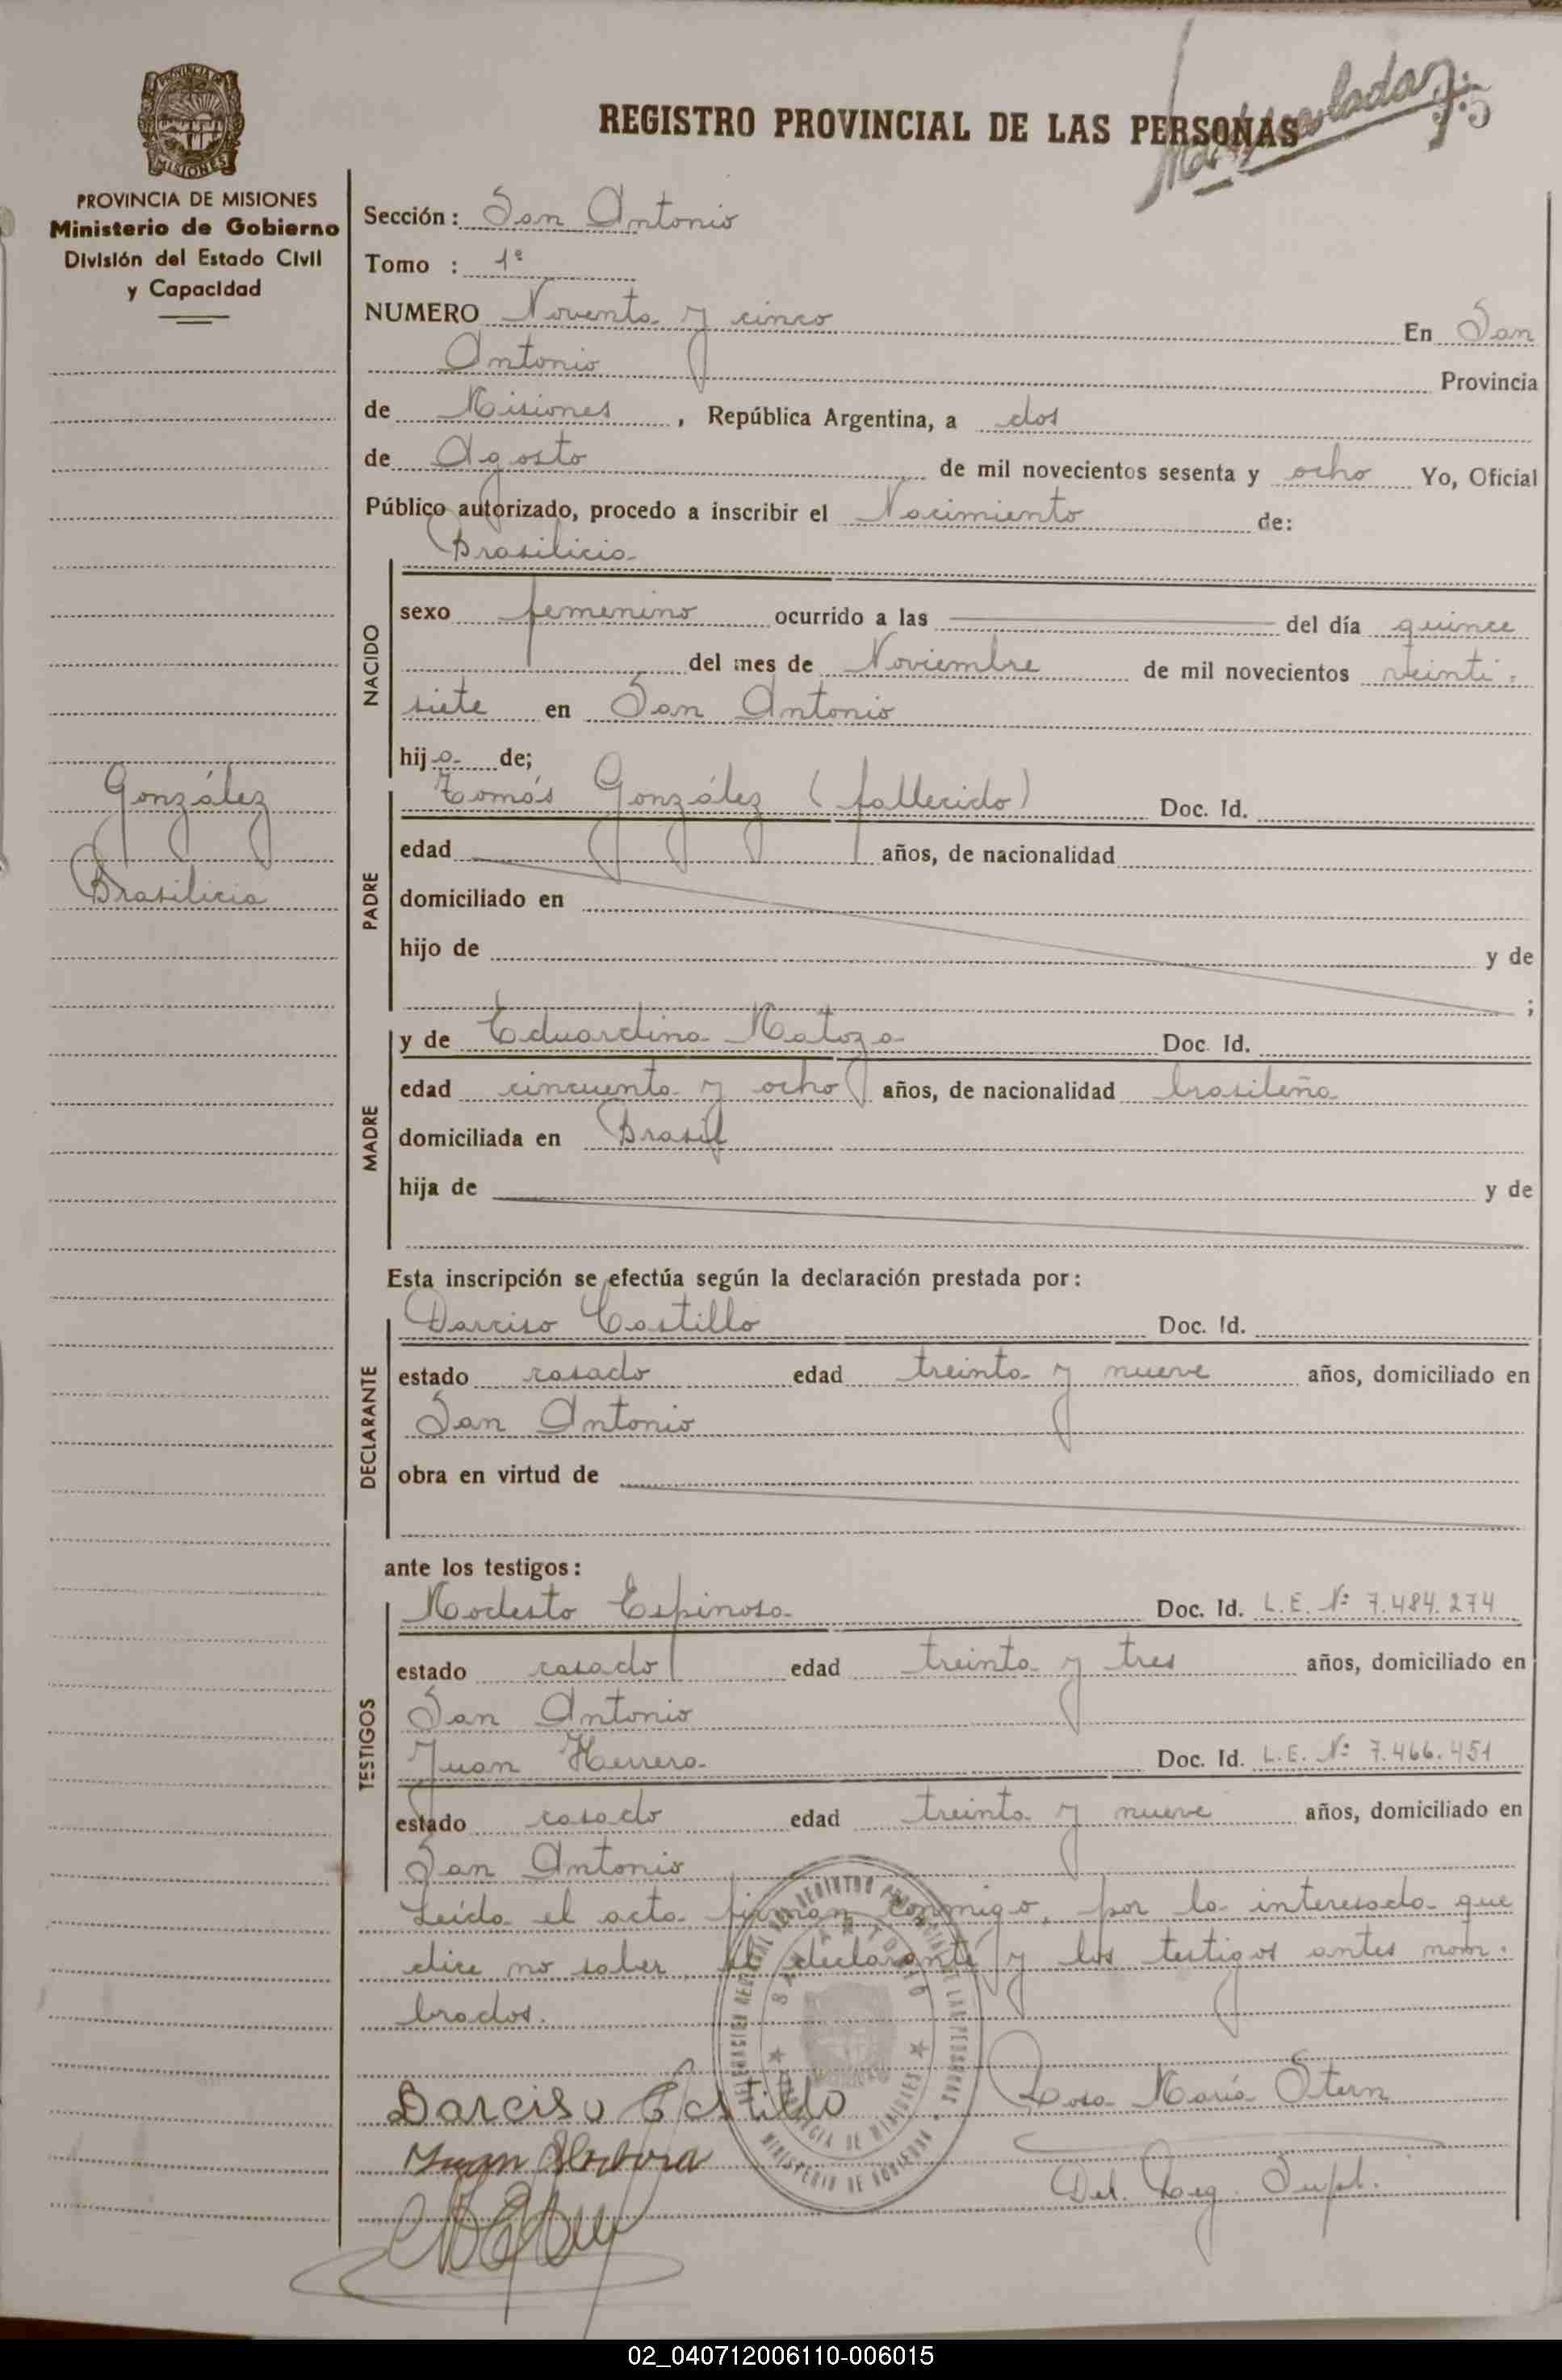 75
REGISTRO PROVINCIAL DE LAS PERSONAS
PROVINCIA DE MISIONES
Ministerio de Gobierno
División del Estado Civil
y Capacidad
Sección: San Antonio
Tomo : 1º
NUMERO Noventa y cinco En San
Antonio Provincia
de Misiones, República Argentina, a dos
de Agosto de mil novecientos sesenta y ocho Yo, Oficial
Público autorizado, procedo a inscribir el Nacimiento de:
Brasilicia
NACIDO
sexo femenino ocurrido a las del día quince
del mes de Noviembre de mil novecientos veinti-
siete en San Antonio
hija de;
González
Brasilicia
PADRE
Tomás González (fallecido) Doc. Id.
edad años, de nacionalidad
domiciliado en
hijo de y de
;
MADRE
y de Eduardina Matozo Doc. Id.
edad cincuenta y ocho años, de nacionalidad brasileña
domiciliada en Brasil
hija de y de
Esta inscripción se efectúa según la declaración prestada por:
DECLARANTE
Darciso Castillo Doc. Id.
estado casado edad treinta y nueve años, domiciliado en
San Antonio
obra en virtud de
ante los testigos:
TESTIGOS
Modesto Espinosa Doc. Id. L.E. Nº 7.484.274
estado casado edad treinta y tres años, domiciliado en
San Antonio
Juan Herrera Doc. Id. L.E. Nº 7.466.451
estado casado edad treinta y nueve años, domiciliado en
San Antonio
Leída el acta firman conmigo, por la interesada que
dice no saber, el declarante y los testigos antes nom-
brados.
Darciso Castillo
Rosa María Stern
Juan
Del. Reg. Supl.
02_040712006110-006015